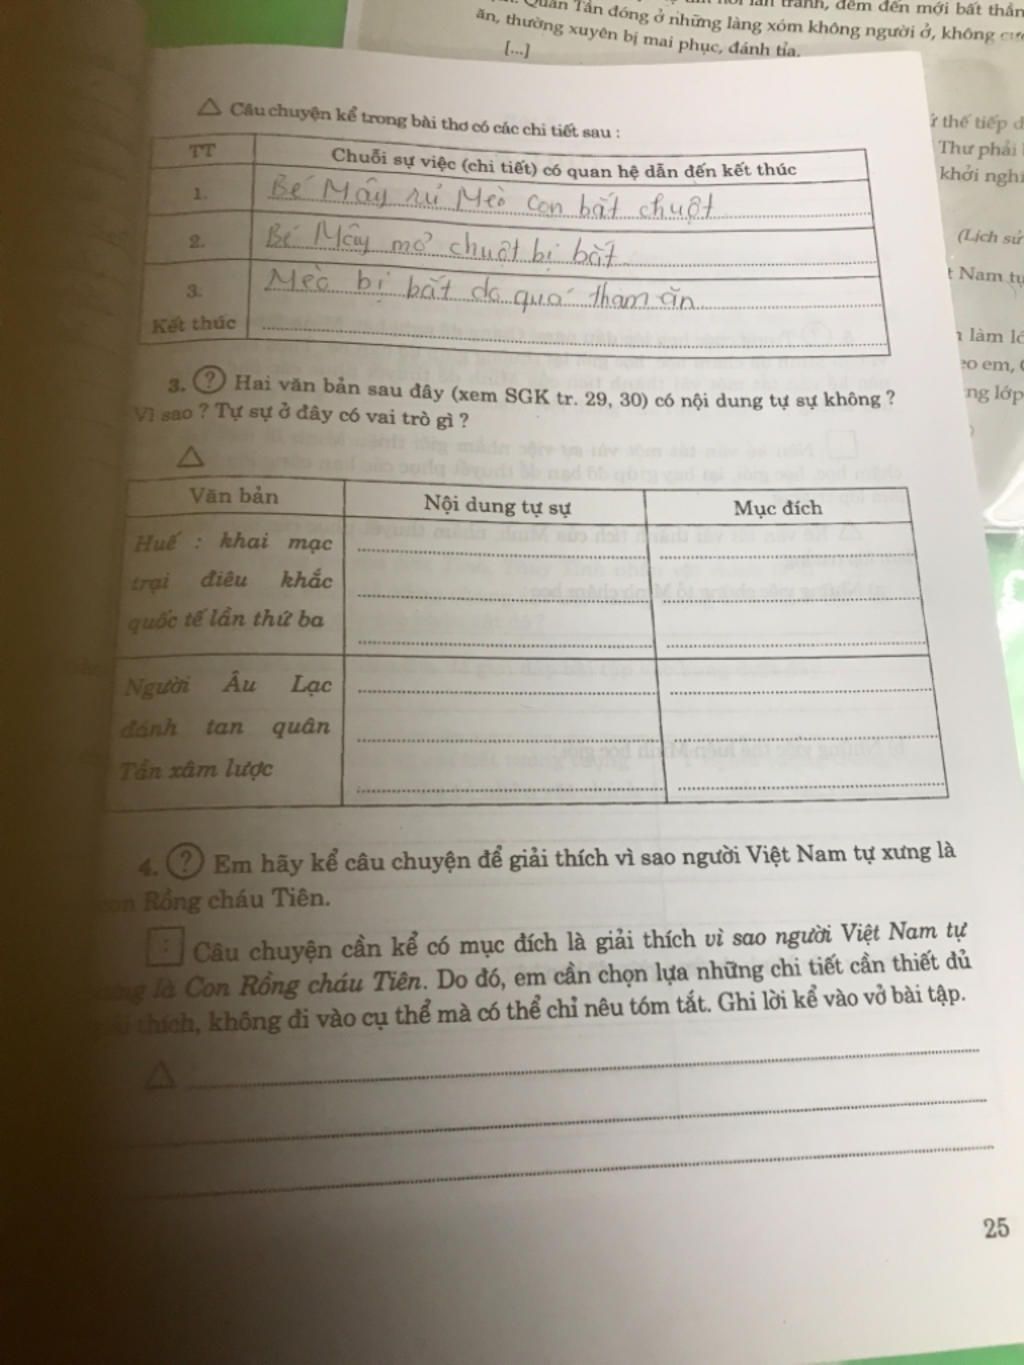 Quân Tần đóng ở những làng xóm không người ở, không
ăn, thường xuyên bị mai phục, đánh tỉa.
[...]
thế tiếp
Thư phải
khởi nghĩ
(Lịch sử
Nam tự
làm
eo em,
ng lớp
△ Câu chuyện kể trong bài thơ có các chi tiết sau :
TT
Chuỗi sự việc (chi tiết) có quan hệ dẫn đến kết thúc
1.
Bé Mây rủ Mèo con bắt chuột
2.
Bé Mây mơ chuột bị bắt
3.
Mèo bị bắt do quá tham ăn
Kết thúc
3. ? Hai văn bản sau đây (xem SGK tr. 29, 30) có nội dung tự sự không ?
Vì sao ? Tự sự ở đây có vai trò gì ?
△
Văn bản
Nội dung tự sự
Mục đích
Huế : khai mạc
trại điêu khắc
quốc tế lần thứ ba
Người Âu Lạc
đánh tan quân
Tần xâm lược
4. ? Em hãy kể câu chuyện để giải thích vì sao người Việt Nam tự xưng là
con Rồng cháu Tiên.
: Câu chuyện cần kể có mục đích là giải thích vì sao người Việt Nam tự
xưng là Con Rồng cháu Tiên. Do đó, em cần chọn lựa những chi tiết cần thiết đủ
giải thích, không đi vào cụ thể mà có thể chỉ nêu tóm tắt. Ghi lời kể vào vở bài tập.
△
25